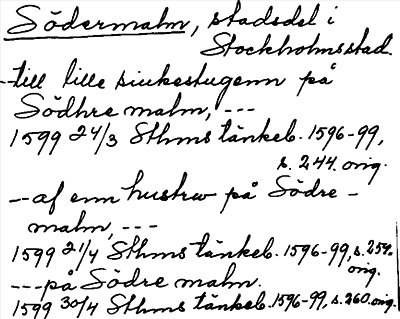 Södermalm, stadsdel i
Stockholms stad.
--till lille siukestugenn på
Södhre malm, ---
1599 24/3 Sthms tänkeb. 1596-99,
s. 244. orig.
--af enn hustrw på Södre-
malm, ---
1599 21/4 Sthms tänkeb. 1596-99, s. 254.
orig.
---på Södre malm.
1599 30/4 Sthms tänkeb. 1596-99, s. 260. orig.